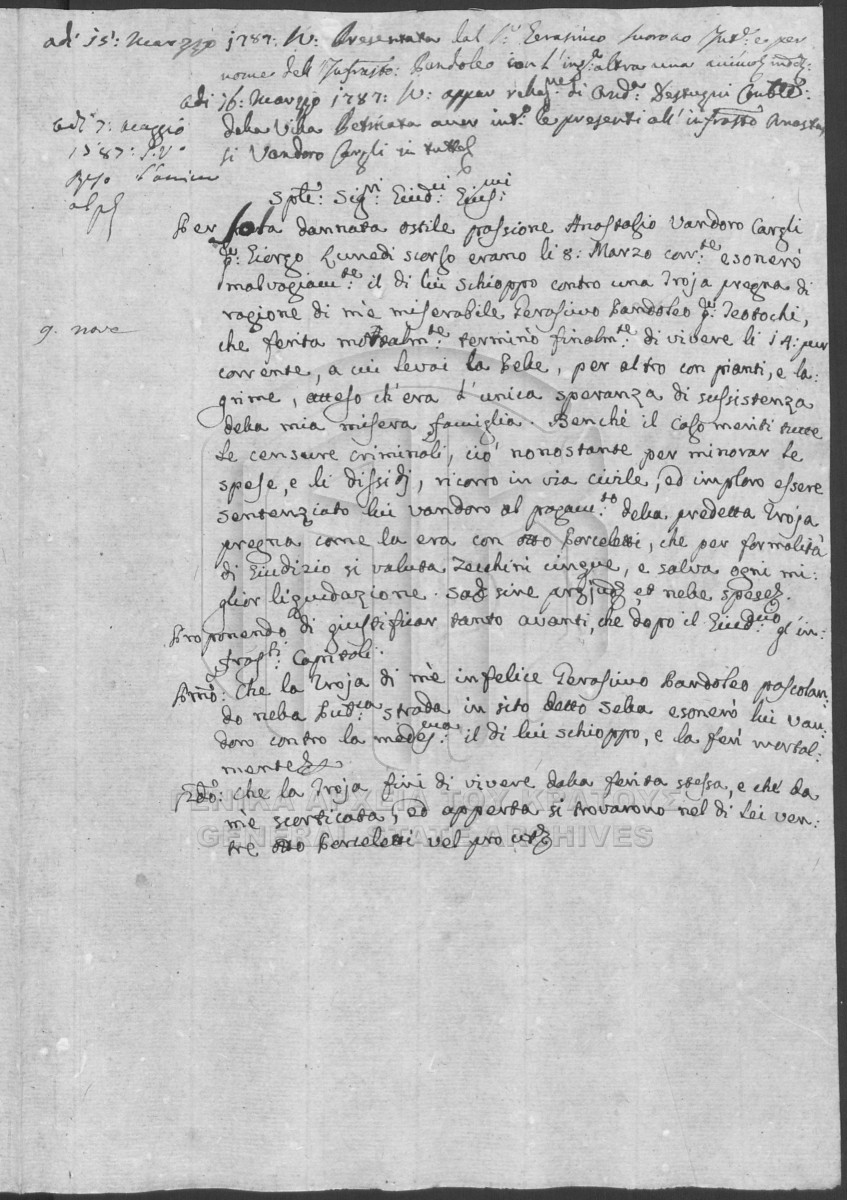 adì 15: Marzzo 1787: S.V: Presentata dal Sr: Gerasimo Int.e e per
nome dell' Infrastto: Bandoleo con l'ins.ta altra una
adì 16: Marzzo 1787: S.V: apper relaz.ne di And.a Destugni
della Villa Petricata aver int.o le presenti all' infrastto Anasta,
si Vandoro Cargli in tuttto
adì 7: Maggio
1787: S.V:
9. nove
Sptli: Sigri: Giud.ci Eccmi:
Per sola dannata ostile passione Anastasio Vandoro Cargli
qu: Giorgo Lunedì scorso eramo li 8: Marzo corr.te esonerò
malvagiam.te il di lui schioppo contro una Troja pregna di
ragione di mè miserabile Gerasimo Bandoleo qu: Teotochi,
che ferita mortalm.te terminò finalm.te di vivere li 14: pur
corrente, a cui levai la Pelle, per altro con pianti, e la:
grime, atteso ch'era l'unica speranza di sussistenza
della mia misera famiglia. Benchè il caso meriti tutte
le censure criminali, ciò nonostante per minorar le
spese, e li dissidj, ricorro in via civile, ed imploro essere
sentenziato lui Vandoro al pagam.to della predetta Troja
pregna come la era con otto Porcelletti, che per formalità
di Giudizio si valuta Zecchini cinque, e salva ogni mi:
glior liquidazione. Sad sine prejud et nelle spese.
Proponendo di giustificar tanto avanti, che dopo il Giud.io gl'in:
frastti: Capitoli.
Prmo: Che la Troja di mè infelice Gerasimo Bandoleo pascolan:
do nella Pub.ca strada in sito detto Sella esonerò lui Van:
doro contro la medes.ma il di lui schioppo, e la ferì mortal:
mente
Sdo: che la Troja finì di vivere dalla ferita stessa, e che da
mè scorticata, ed apperta si trovarono nel di Lei ven:
tre otto Porcelletti vel pro ut
ΓΕΝΙΚΑ ΑΡΧΕΙΑ ΤΟΥ ΚΡΑΤΟΥΣ
GENERAL STATE ARCHIVES